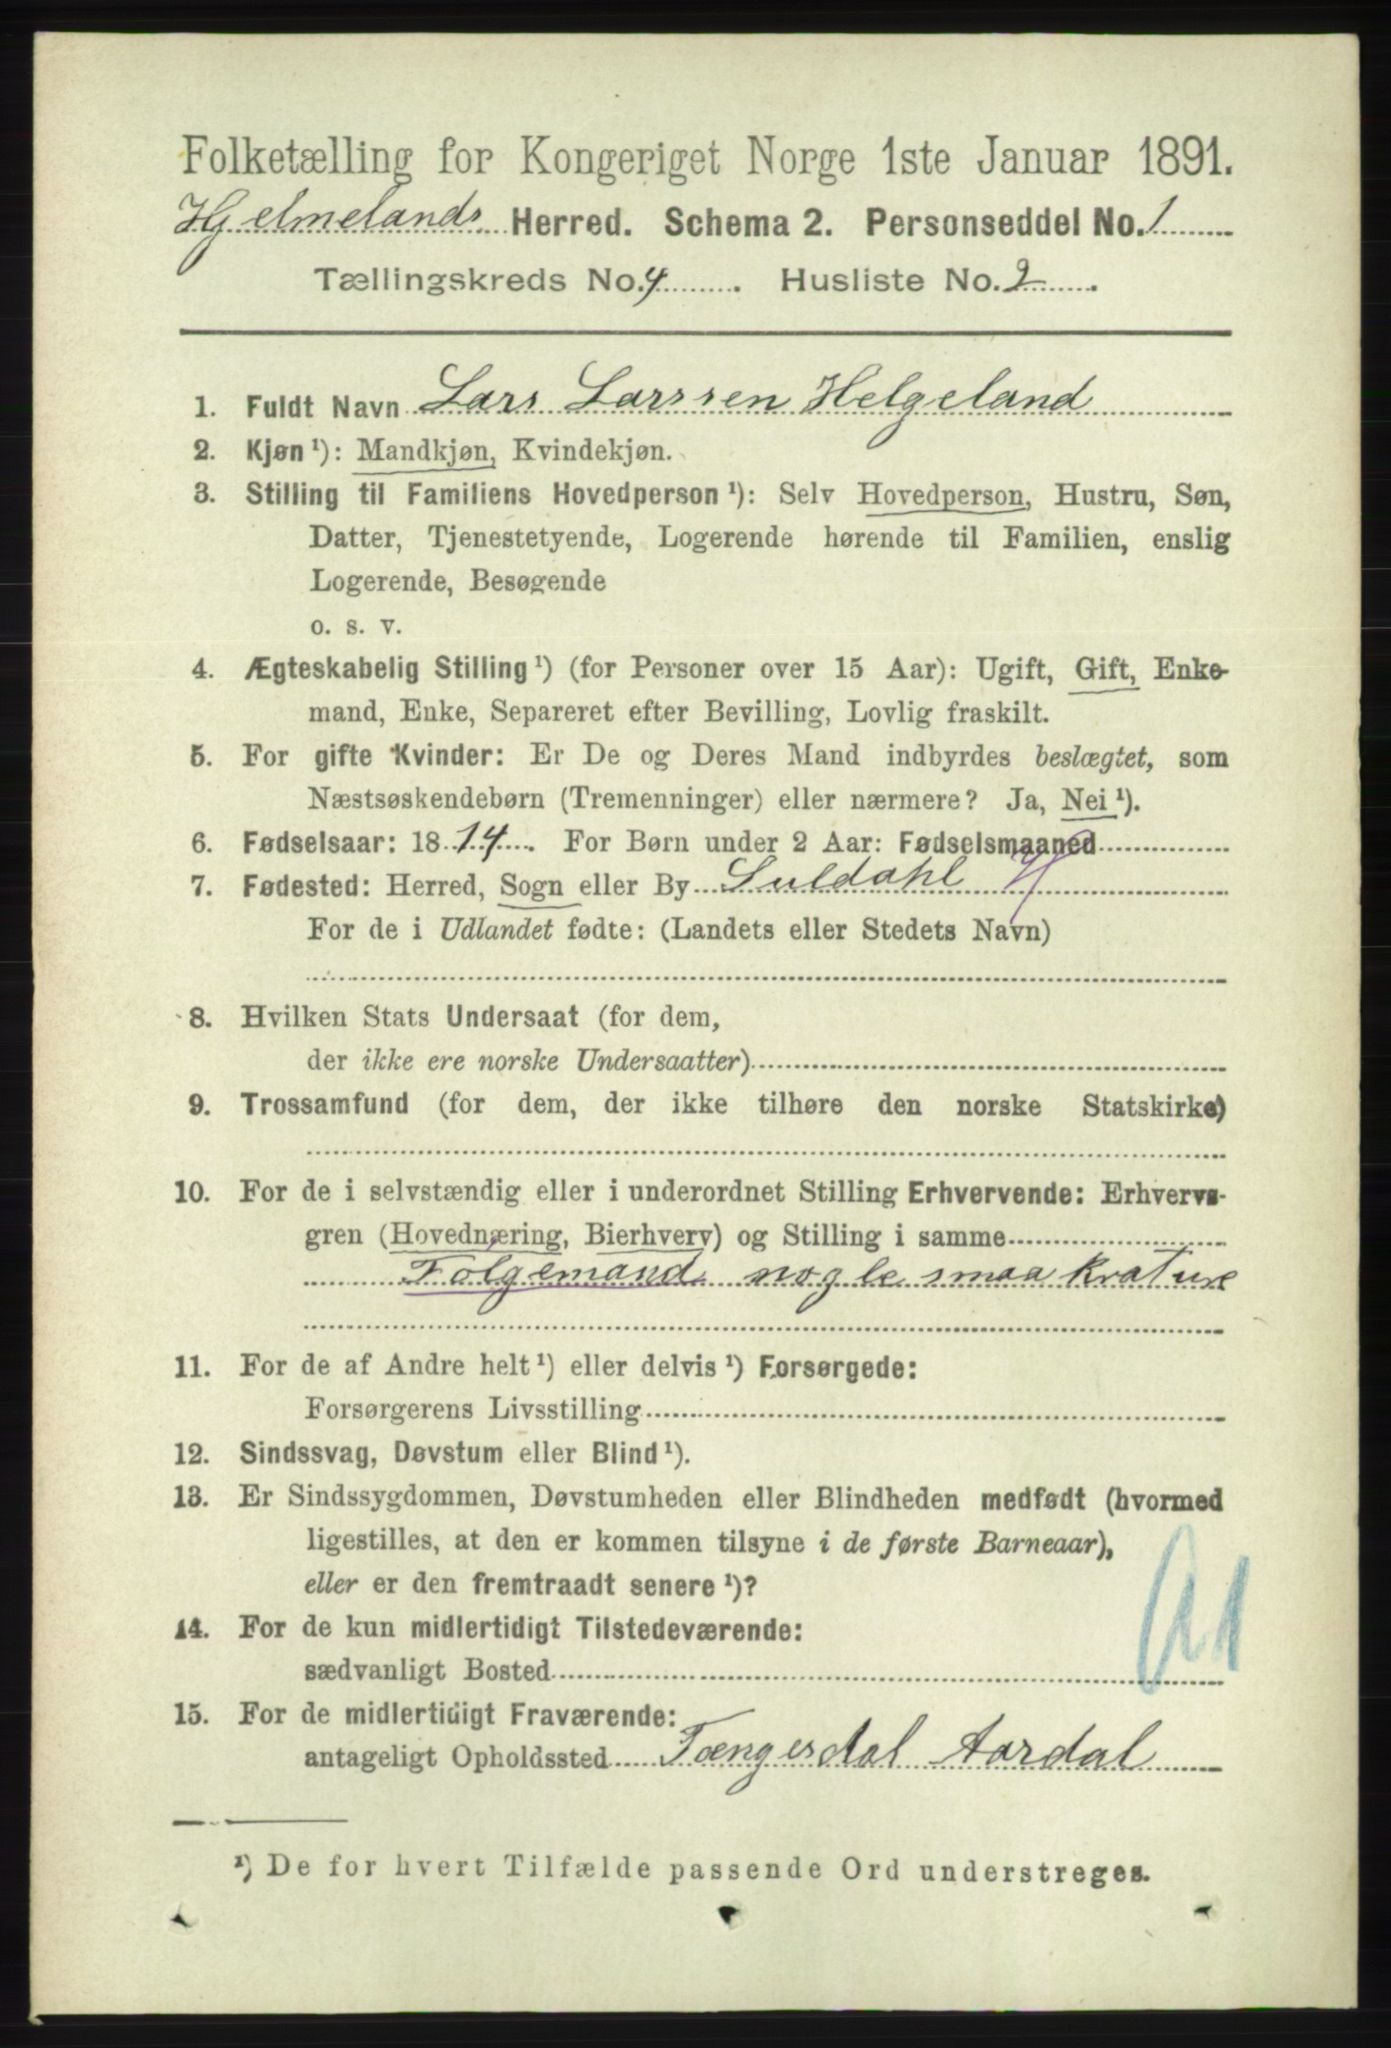 Folketælling for Kongeriget Norge 1ste Januar 1891.
Hjelmelands Herred. Schema 2. Personseddel No. 1
Tællingskreds No. 4. Husliste No. 2.
1. Fuldt Navn Lars Larssen Helgeland
2. Kjøn ¹): Mandkjøn, Kvindekjøn.
3. Stilling til Familiens Hovedperson ¹): Selv Hovedperson, Hustru, Søn,
Datter, Tjenestetyende, Logerende hørende til Familien, enslig
Logerende, Besøgende
o. s. v.
4. Ægteskabelig Stilling ¹) (for Personer over 15 Aar): Ugift, Gift, Enke-
mand, Enke, Separeret efter Bevilling, Lovlig fraskilt.
5. For gifte Kvinder: Er De og Deres Mand indbyrdes beslægtet, som
Næstsøskendebørn (Tremenninger) eller nærmere? Ja, Nei ¹).
6. Fødselsaar: 1814. For Børn under 2 Aar: Fødselsmaaned
7. Fødested: Herred, Sogn eller By Suldahl
For de i Udlandet fødte: (Landets eller Stedets Navn)
8. Hvilken Stats Undersaat (for dem,
der ikke ere norske Undersaatter)
9. Trossamfund (for dem, der ikke tilhøre den norske Statskirke)
10. For de i selvstændig eller i underordnet Stilling Erhvervende: Erhvervs-
gren (Hovednæring, Bierhverv) og Stilling i samme
Følgemand nogle smaa krature
11. For de af Andre helt ¹) eller delvis ¹) Forsørgede:
Forsørgerens Livsstilling
12. Sindssvag, Døvstum eller Blind ¹).
13. Er Sindssygdommen, Døvstumheden eller Blindheden medfødt (hvormed
ligestilles, at den er kommen tilsyne i de første Barneaar),
eller er den fremtraadt senere ¹)?
14. For de kun midlertidigt Tilstedeværende:
sædvanligt Bosted
15. For de midlertidigt Fraværende:
antageligt Opholdssted Tængesdal Aardal
¹) De for hvert Tilfælde passende Ord understreges.